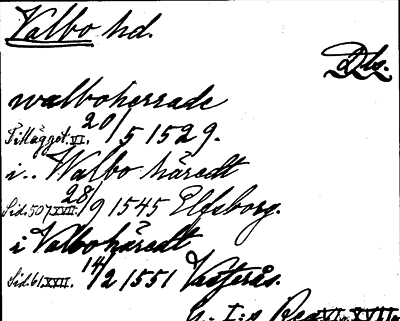 Valbo hd.
Dls.
walboherrade
Tillägget.VI. 20/5 1529.
i.. Walbo häredt
Sid.507.XVII. 28/9 1545 Elfsborg.
i Valbohäredt
Sid.61.XVII. 14/2 1551 Västerås.
G. I:s Reg. VI. XVII.